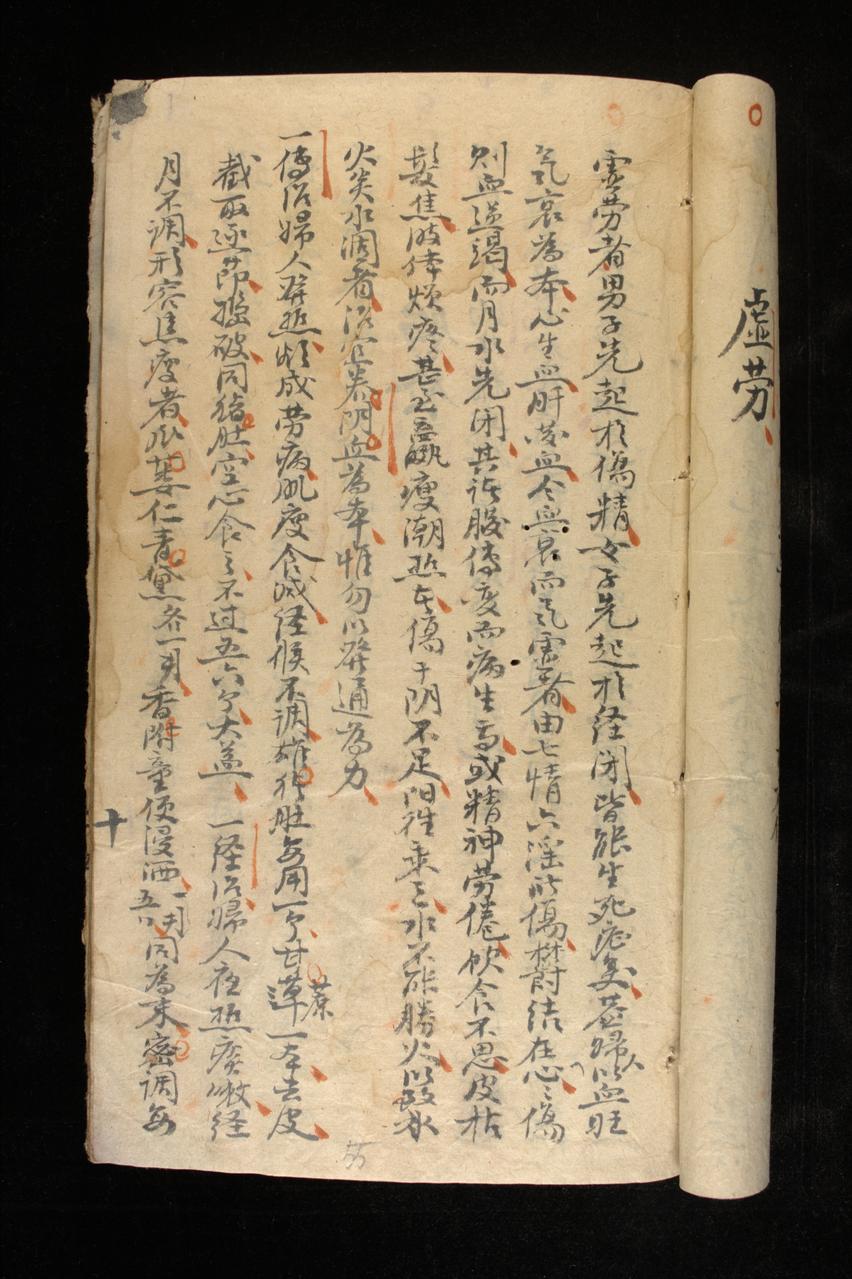 虛劳
虛劳者男子先起於傷精女子先起於经闭皆能生死症矣蓋婦人以血旺
气衰為本心生血肝藏血今血衰而气虛者由七情六淫所傷欝结在心〻傷
则血逆竭而月水先闭其証脹傳变而病生焉或精神劳倦飲食不思皮枯
髮焦肢体烦疼甚至羸瘦潮热夲傷于阴不足阳往乘之水不能勝火以致水
火炎水涸者治宜养阴血為本惟勿以發通為力
一傳治婦人發热漸成劳病肌瘦食减经候不调雄猪肚每用一个甘蔗一本去皮
截取逐节搥破同猪肚空心食之不过五六个大益 一经治婦人夜热痰嗽经
月不调形容焦瘦者瓜蒌仁青黛各一両香附童便浸洒一両五〡同為末蜜调每
十
55